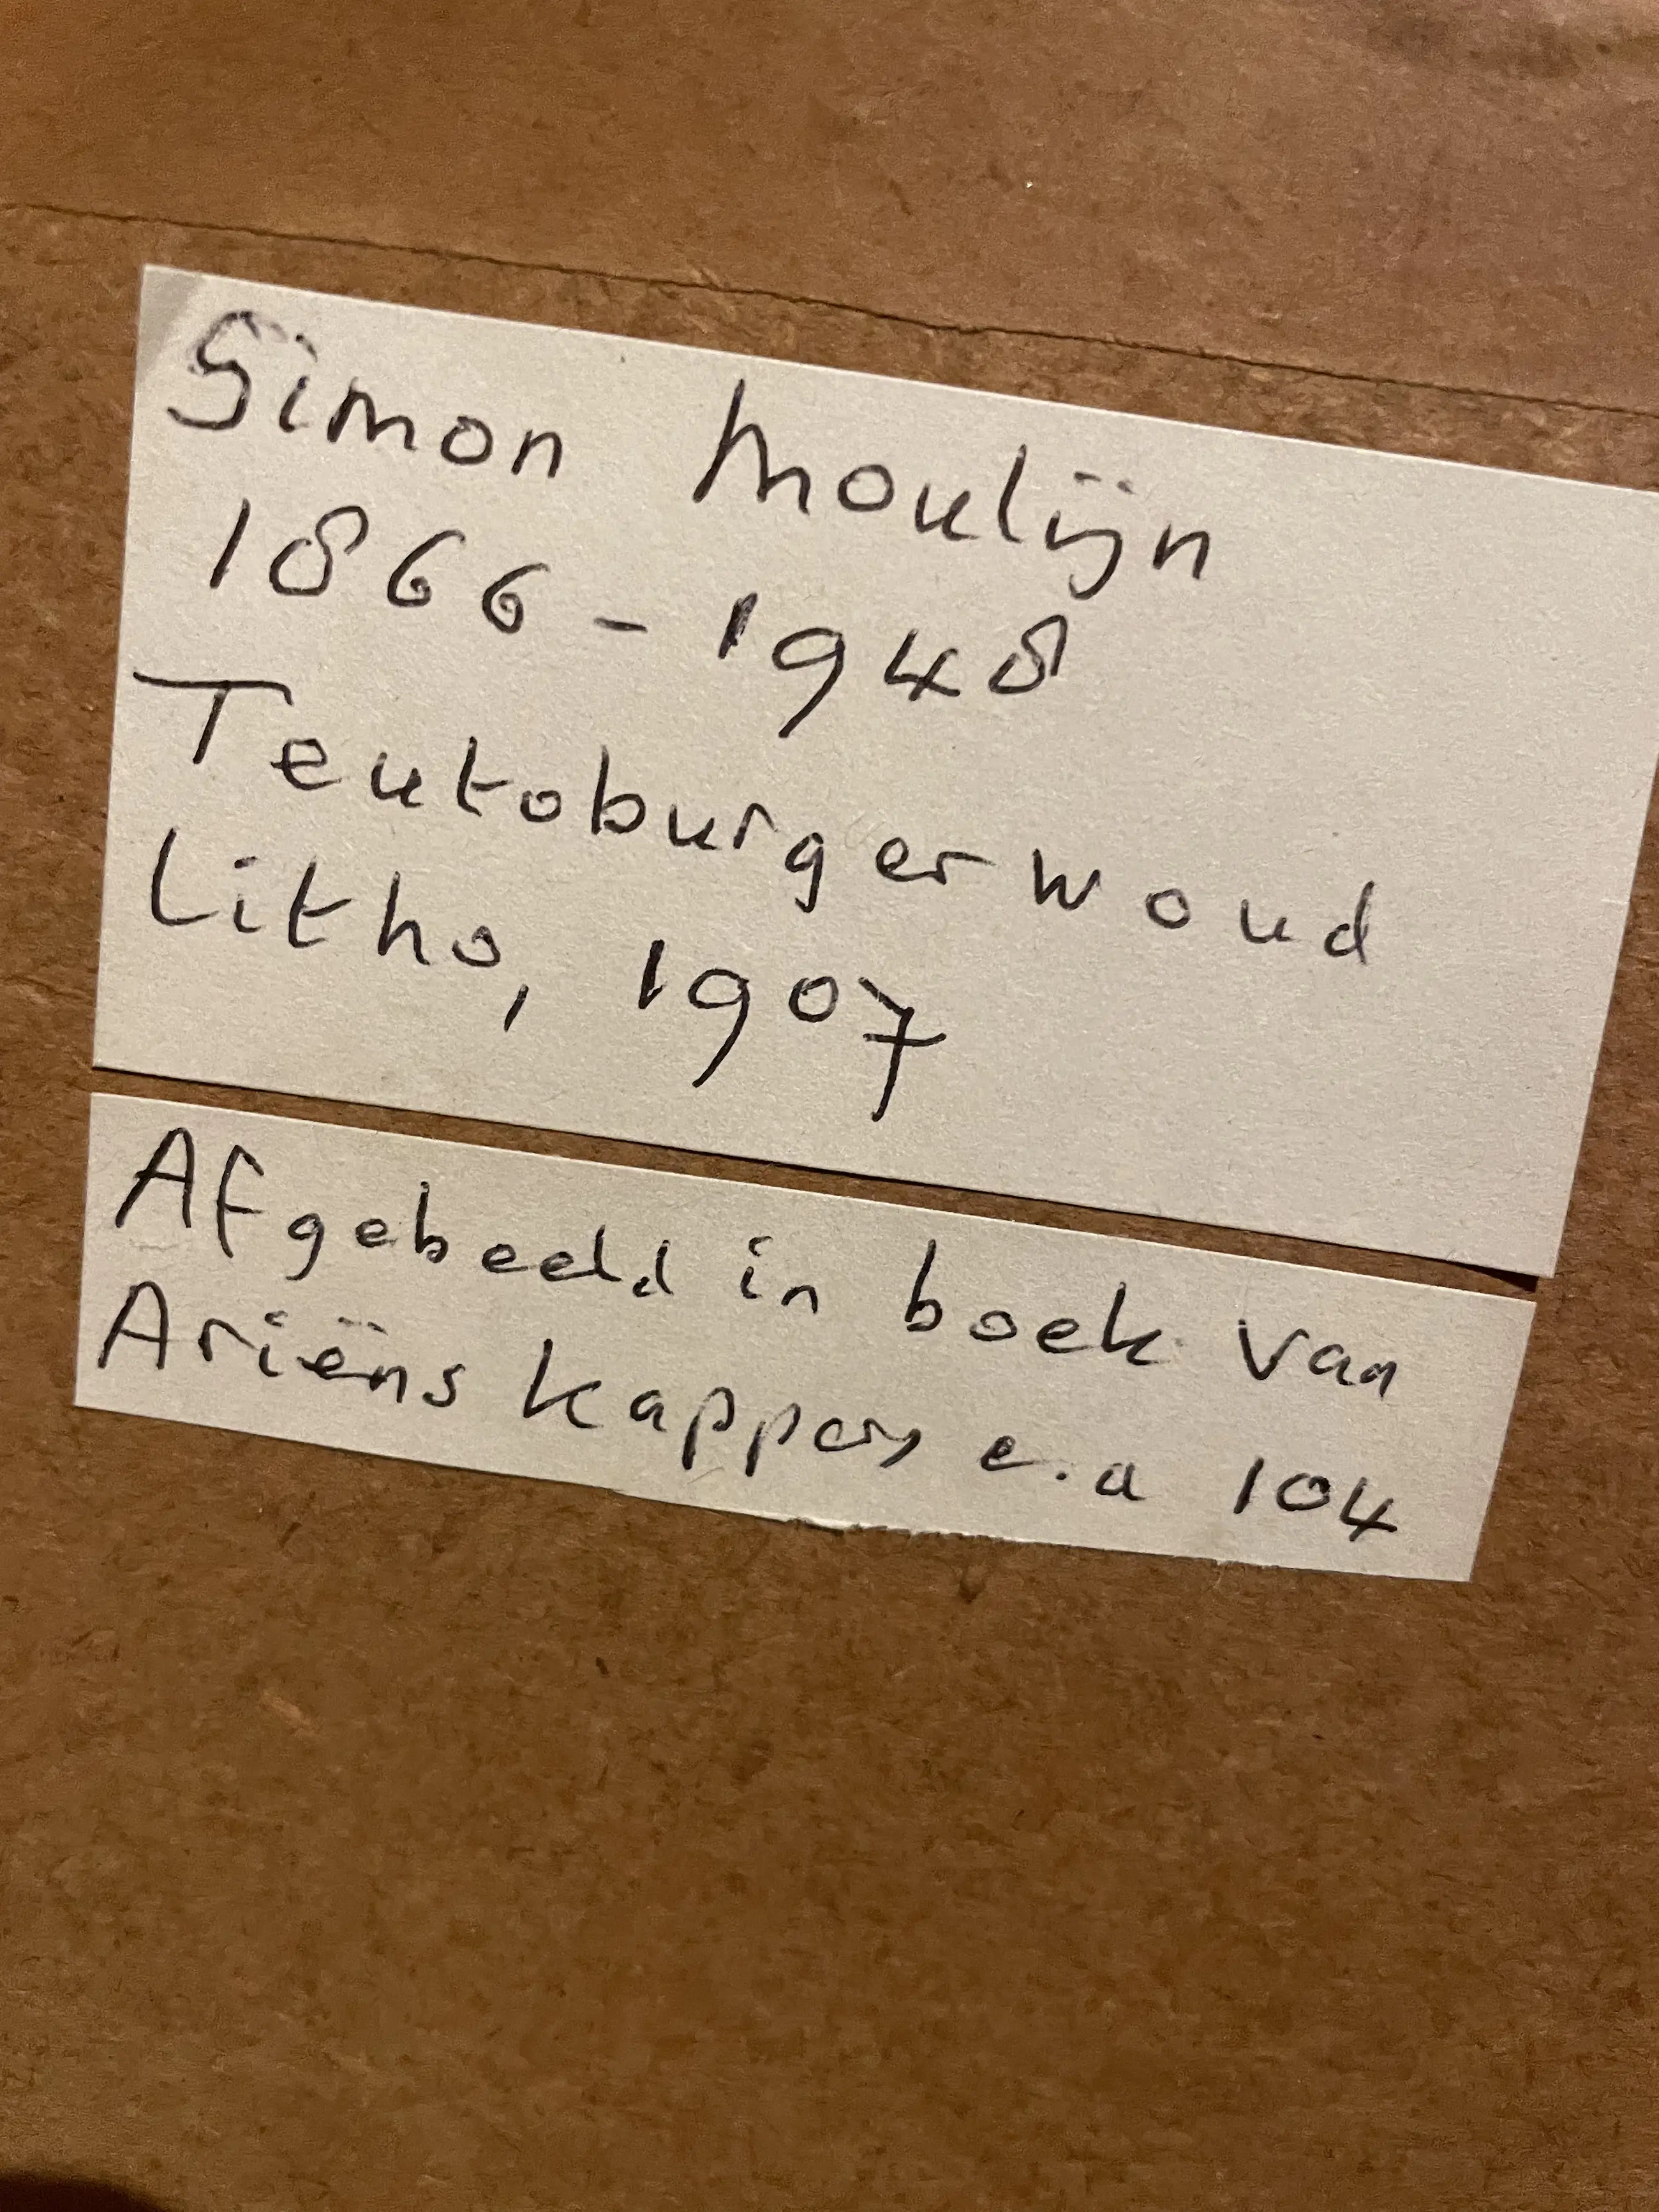 Simon Moulijn
1866-1948
Teutoburgerwoud
Litho, 1907
Afgebeeld in boek van
Ariëns Kappers e.a 104